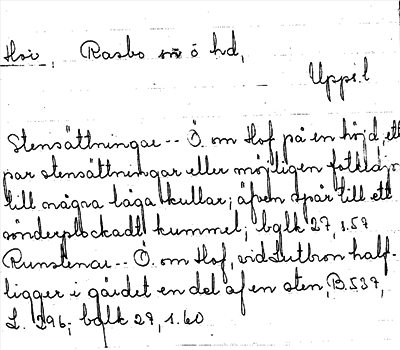 Hov, Rasbo sn ö hd,
Upps.l
Stensättningar -- Ö. om Hof på en höjd, ett
par stensättningar eller möjligen fotkedjor
till några låga kullar; äfven spår till ett
sönderplockadt kummel; bglk 27, s.59
Runstenar -- Ö. om Hof, vid Slutbron half-
ligger i gärdet en del af en sten, B.537,
L. 296; bglk 27, s.60